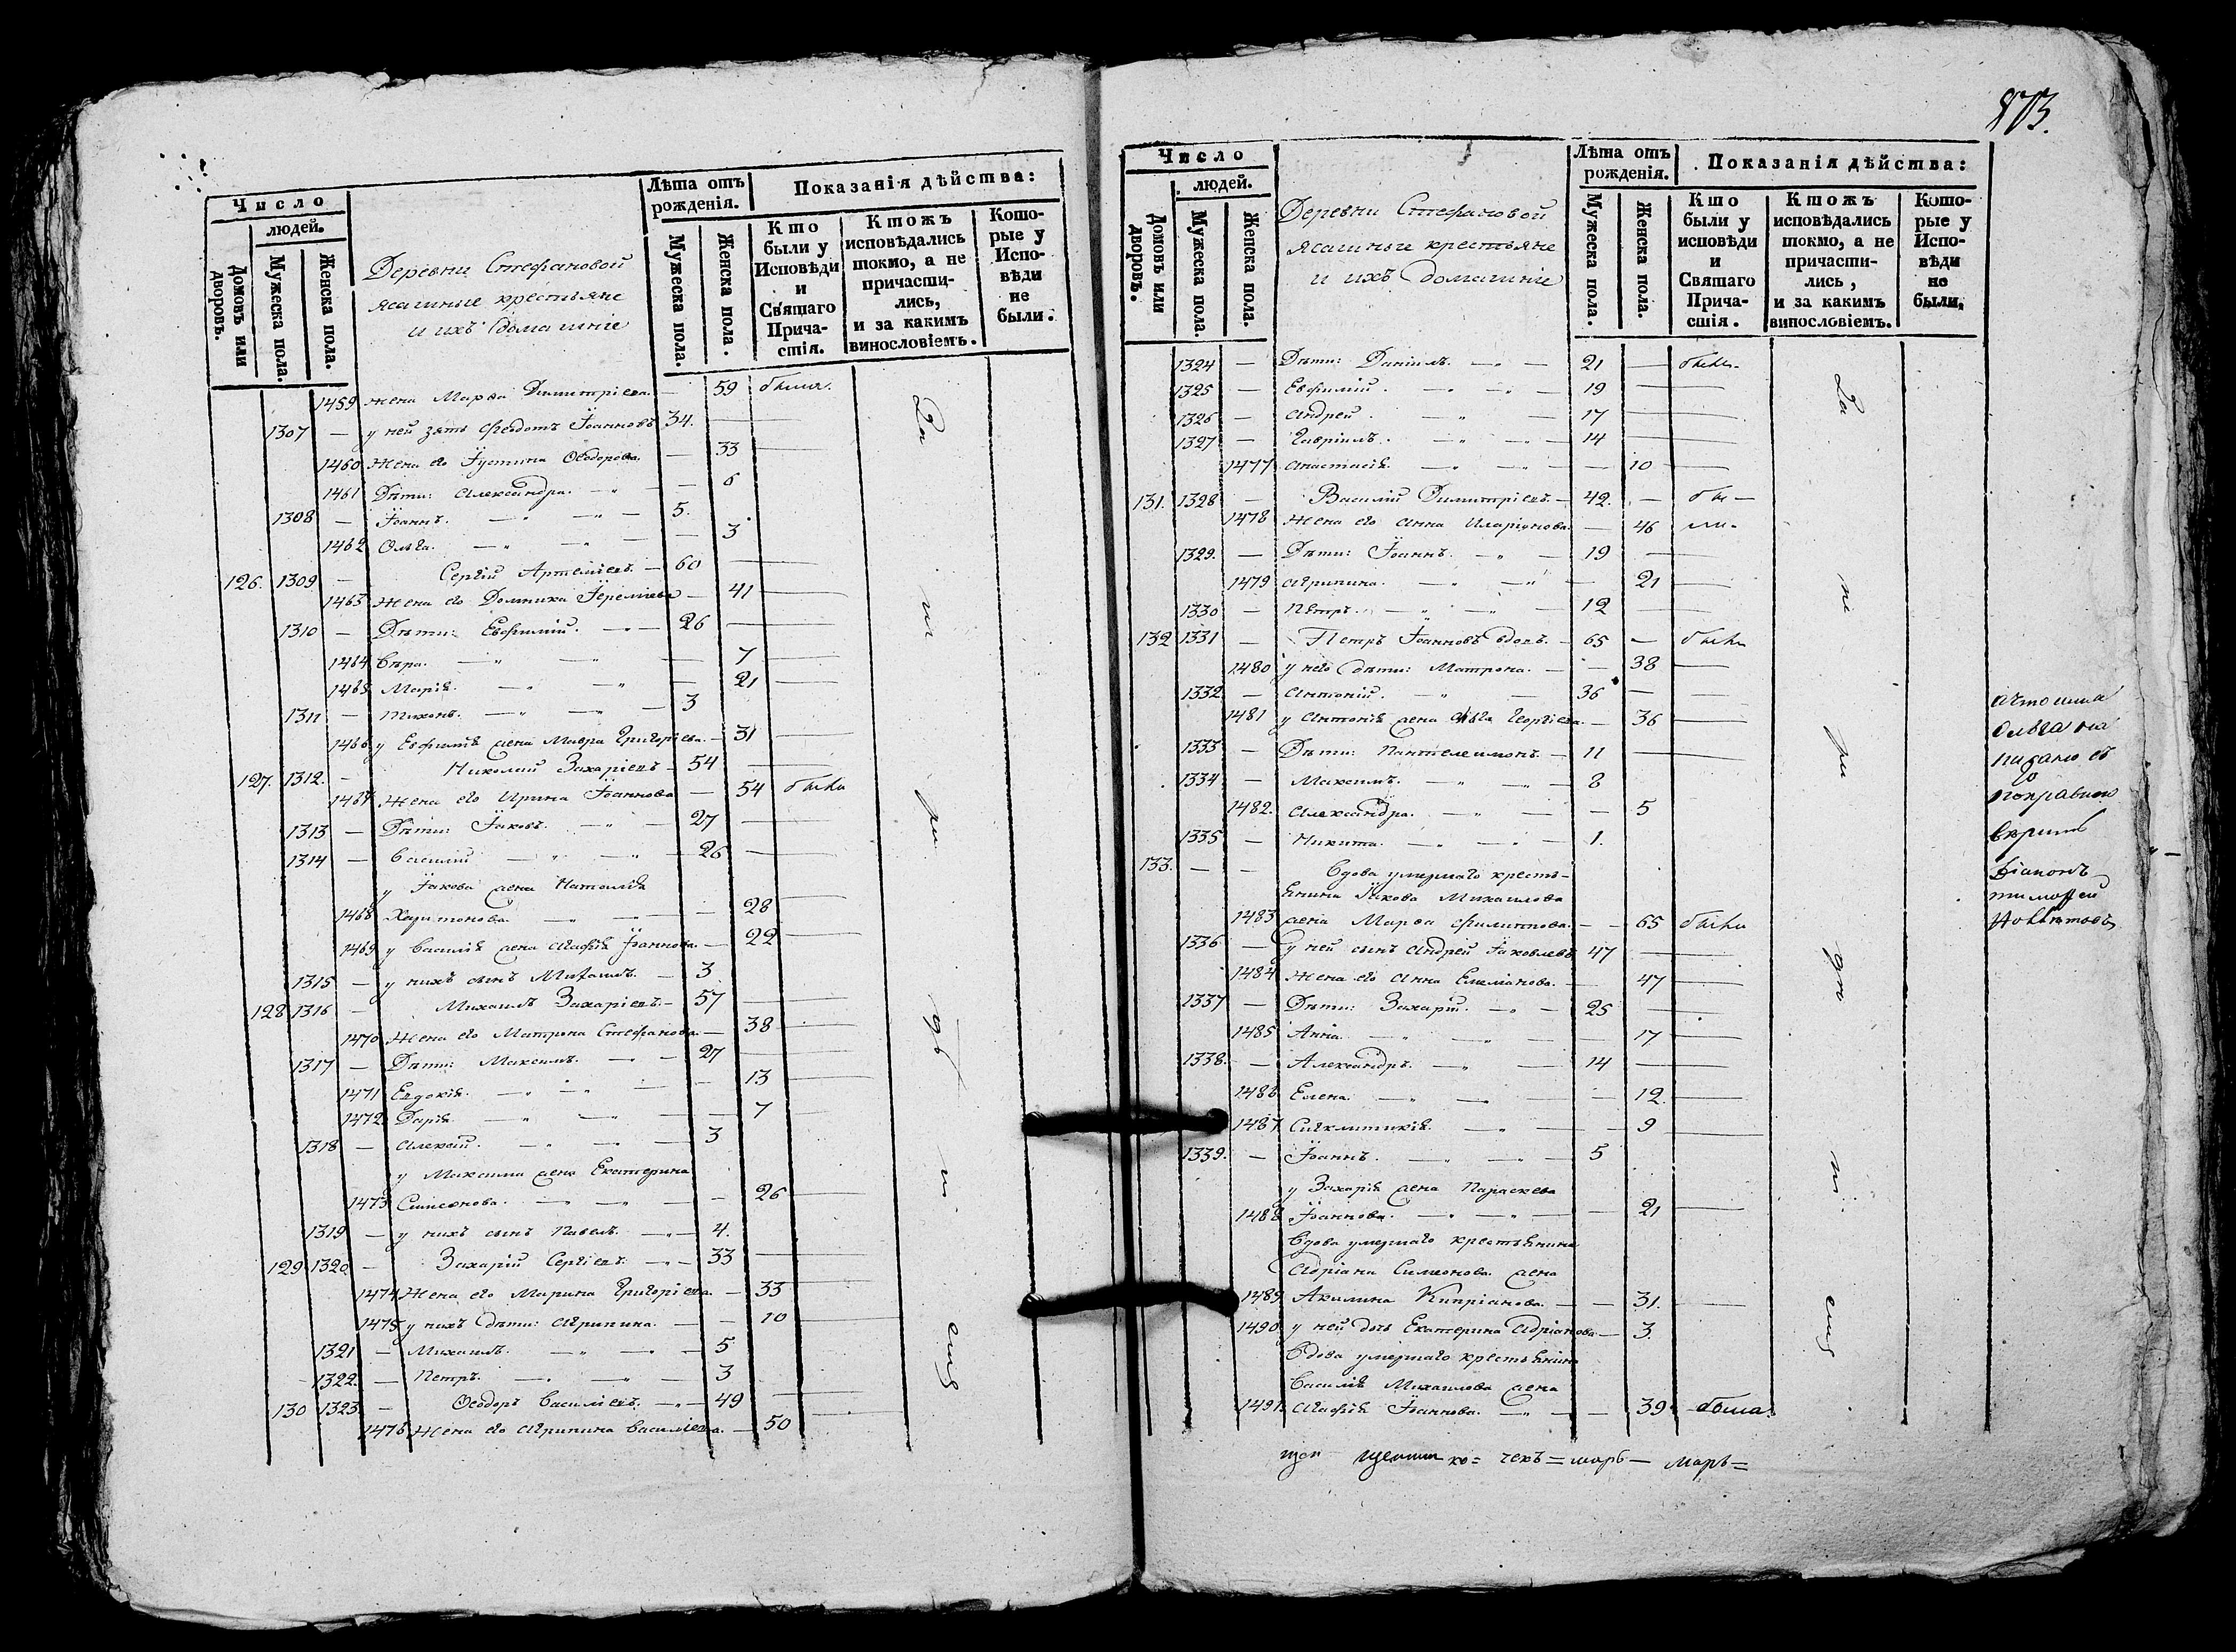 Число
людей.
Домовъ или дворовъ.
Мужеска пола.
Женска пола.
Деревни Стефановой
ясашные крестьяне
и ихъ домашніе
Лѣта отъ рожденія.
Мужеска пола.
Женска пола.
Показанія дѣйства:
Кто были у Исповѣди и Святаго Причастія.
Ктожъ исповѣдались токмо, а не причастились, и за какимъ винословіемъ.
Которые у Исповѣди не были.
1459 жена Марѳа Димитріева. — 59 была.
1307 — у ней зять Ѳеодотъ Іоанновъ 34.
1460 Жена его Іустина Ѳеодорова. — 33
1461 Дѣти: Александра. — 6
1308 — Іоаннъ. — 5.
1462 Ольга. — 3
126. 1309 — Сергій Артеміевъ. — 60
1463 Жена его Домника Іереміева — 41
1310 — Дѣти: Евфимій. — 26
1464 Вѣра. — 7
1465 Марія. — 21
1311 — Тихонъ. — 3
1466 у Евфимія жена Мавра Григоріева. — 31
127. 1312. — Николай Захаріевъ — 54
1467 Жена его Ирина Іоаннова — 54 были
1313 — Дѣти: Іаковъ. — 27
1314 — Василій — 26
у Іакова жена Наталія
1468 Харитонова. — 28
1469 у Василія жена Агафія Іоаннова. — 22
1315 — у нихъ сынъ Михаилъ. — 3
128 1316 — Михаилъ Захаріевъ. — 57
1470 Жена его Матрона Стефанова. — 38
1317 — Дѣти: Максимъ. — 27
1471 Евдокія. — 13
1472 Дарія. — 7
1318 — Алексій. — 3
у Максима жена Екатерина
1473 Симеонова. — 26
1319 — у нихъ сынъ Павелъ. — 4.
129 1320 — Захарій Сергіевъ. — 33
1474 Жена его Марина Григоріева. — 33
1475 у нихъ дѣти: Агрипина. — 10
1321 — Михаилъ. — 5
1322. — Петръ. — 3
130 1323 — Ѳеодоръ Василіевъ. — 49
1476 Жена его Агрипина Василіева. — 50
873.
Число
людей.
Домовъ или дворовъ.
Мужеска пола.
Женска пола.
Деревни Стефановой
ясашные крестьяне
и ихъ домашніе
Лѣта отъ рожденія.
Мужеска пола.
Женска пола.
Показанія дѣйства:
Кто были у исповѣди и Святаго Причастія.
Ктожъ исповѣдались токмо, а не причастились, и за какимъ винословіемъ.
Которые у Исповѣди не были.
1324 — Дѣти: Даніилъ. — 21 — были
1325 — Евфимій. — 19
1326 — Андрей. — 17
1327 — Гавріилъ. — 14
1477 Анастасія. — 10
131. 1328 — Василій Димитріевъ. — 42. — бы —
1478 Жена его Анна Иларіонова. — 46 ли.
1329. — Дѣти: Іоаннъ. — 19
1479 Агрипина. — 21
1330 — Петръ. — 12
132 1331 — Петръ Іоанновъ вдовъ. — 65 — были
1480 у него дѣти: Матрона. — 38
1332 — Антоній. — 36
1481 у Антонія жена Ольга Георгіева. — 36
1333 — Дѣти: Пантелеимонъ. — 11
1334 — Максимъ. — 8
1482. Александра. — 5
1335 — Никита. — 1.
133. — — Вдова умершаго кресть-
янина Іакова Михаилова
1483 жена Марѳа Филиппова. — 65 были
1336 — у ней сынъ Андрей Іаковлевъ 47
1484 Жена его Анна Емеліанова. — 47
1337 — Дѣти: Захарій. — 25
1485 Анна. — 17
1338. — Александръ. — 14
1486 Елена. — 12.
1487 Сигклитикія. — 9
1339. — Іоаннъ. — 5
у Захарія жена Параскева
1488 Іоаннова. — 21
Вдова умершаго крестьянина
Адріана Симеонова жена
1489 Акилина Кипріанова. — 31.
1490 у ней дочь Екатерина Адріанова — 3.
Вдова умершаго крестьянина
Василія Михаилова жена
1491. Агафія Іоаннова. — 39 была
а что имя
Ольга на
писано съ
поправкою
діаконъ
Тимоѳей